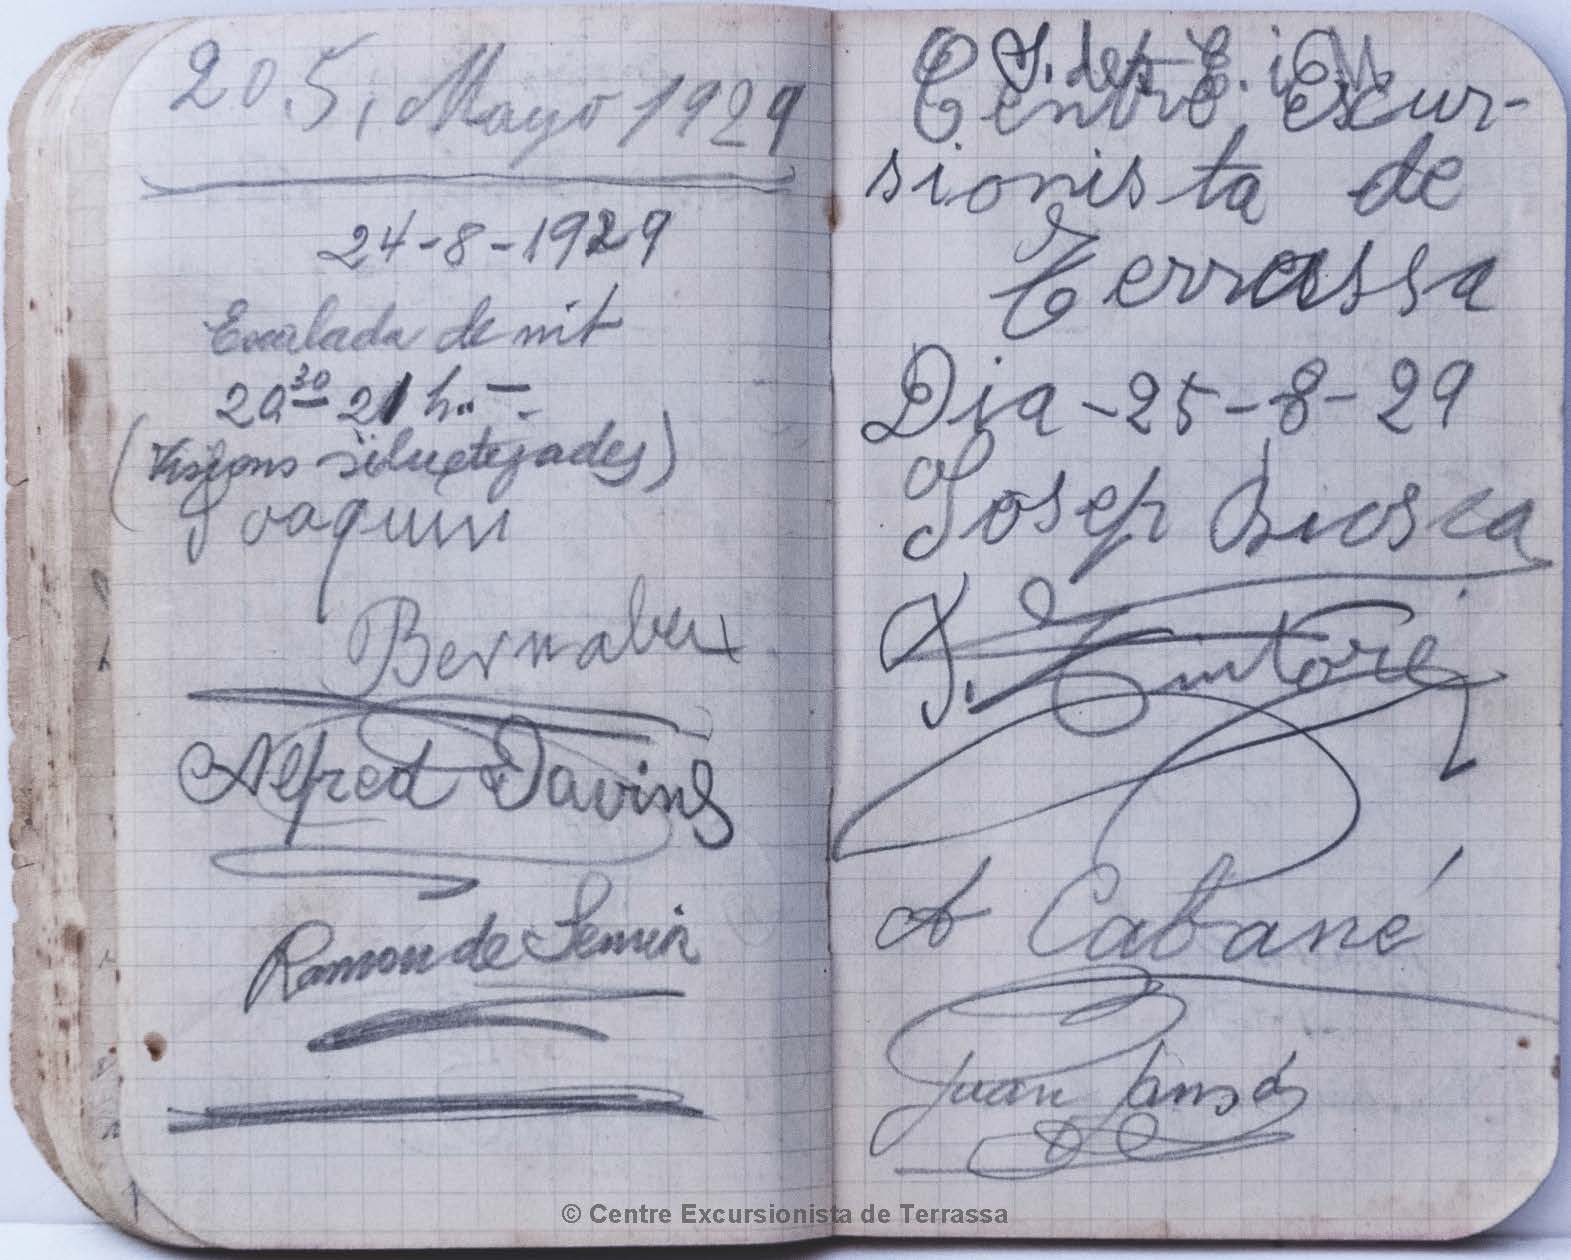 20 5, Mayo 1929
24-8-1929
Escalada de nit
20 30 21 h.
(Visions siluetejades)
Joaquin
Bernabeu
Alfred Davins
Ramon de Semir
Centre Escur-
sionista de
Terrassa
Dia-25-8-29
Josep Biosca
J. Tintoré
A Cabané
Juan Jansá
© Centre Excursionista de Terrassa